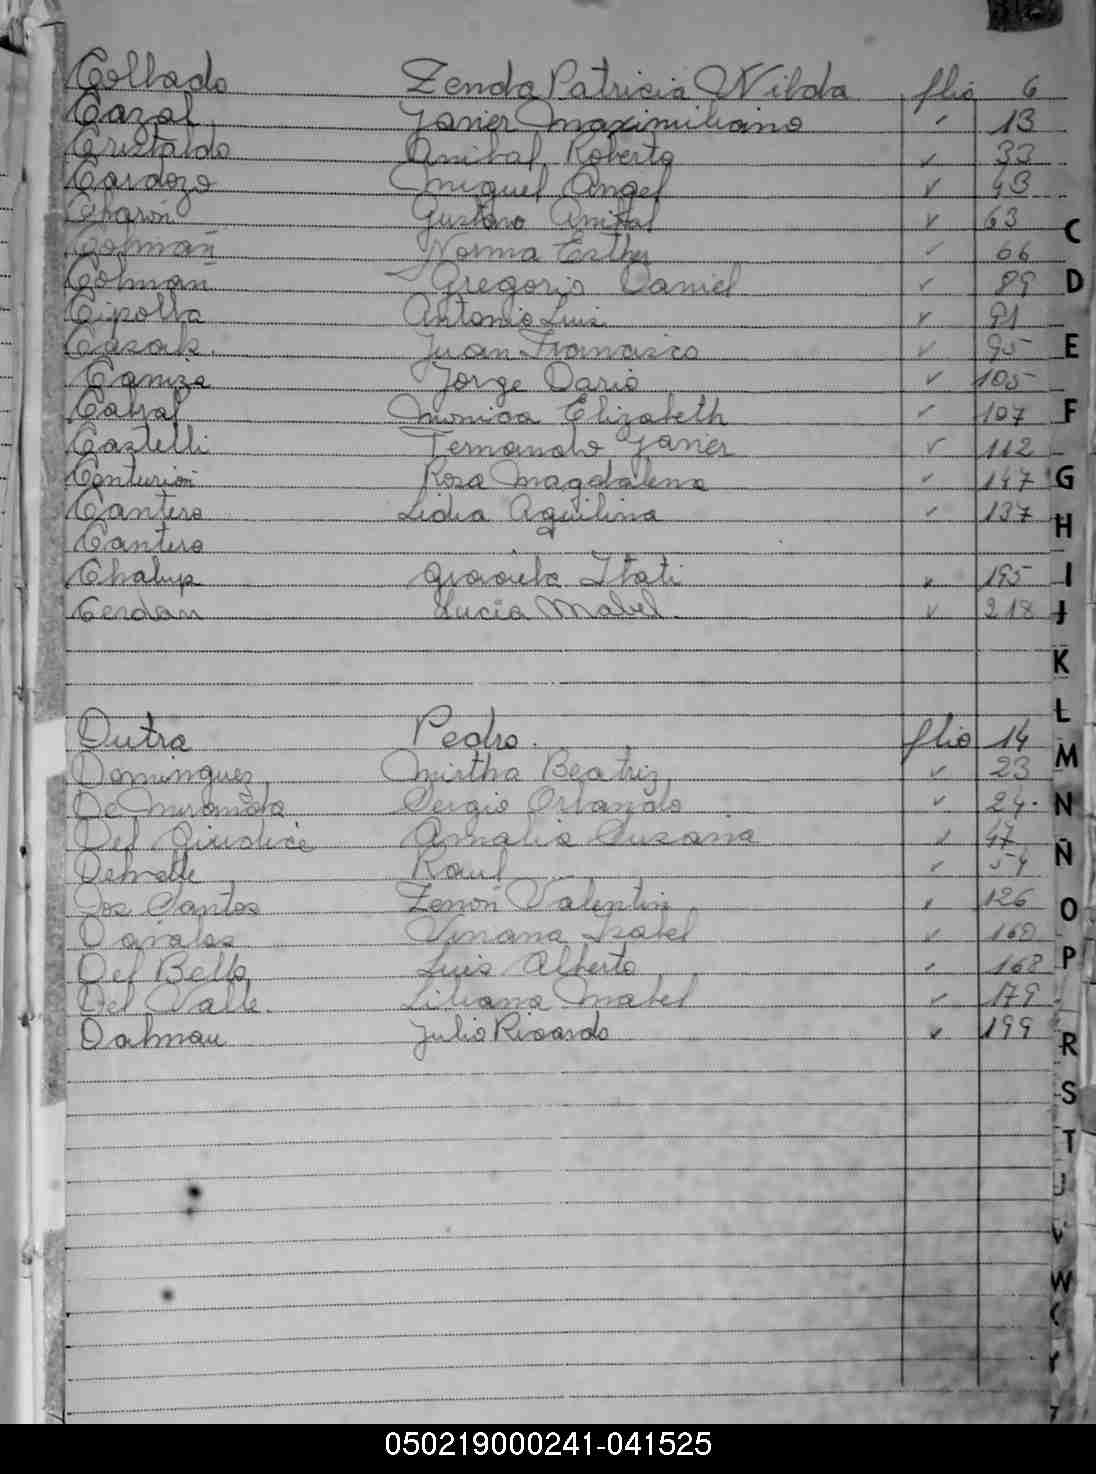 Collado Zenda Patricia Nilda flio 6
Cazal Javier Maximiliano " 13
Cristaldo Anibal Roberto ✓ 33
Cardozo Miguel Angel ✓ 43
Charon Gustavo Anibal ✓ 63
Colman Norma Esther ✓ 66
Colman Gregorio Daniel ✓ 89
Cipolla Antonio Luis ✓ 91
Casals. Juan Francisco ✓ 95
Caniza Jorge Dario ✓ 105
Cabral Monica Elizabeth ✓ 107
Castelli Fernando Javier ✓ 112
Centurion Rosa Magdalena ✓ 147
Cantero Lidia Aquilina ✓ 137
Cantero
Chalup Graciela Itati ✓ 195
Cerdan Lucia Mabel. ✓ 218
Dutra Pedro. flio 14
Dominguez Mirtha Beatriz ✓ 23
De Miranda Sergio Orlando ✓ 24.
Del Giudice Amalia Susana ✓ 47
Delvalle Raul ✓ 54
Dos Santos Zenon Valentin ✓ 126
Davalos Viviana Isabel ✓ 160
Del Bello Luis Alberto ✓ 168
Del Valle. Liliana Mabel ✓ 179
Dalmau Julio Ricardo ✓ 199
C
D
E
F
G
H
I
J
K
L
M
N
Ñ
O
P
R
S
T
U
V
W
050219000241-041525